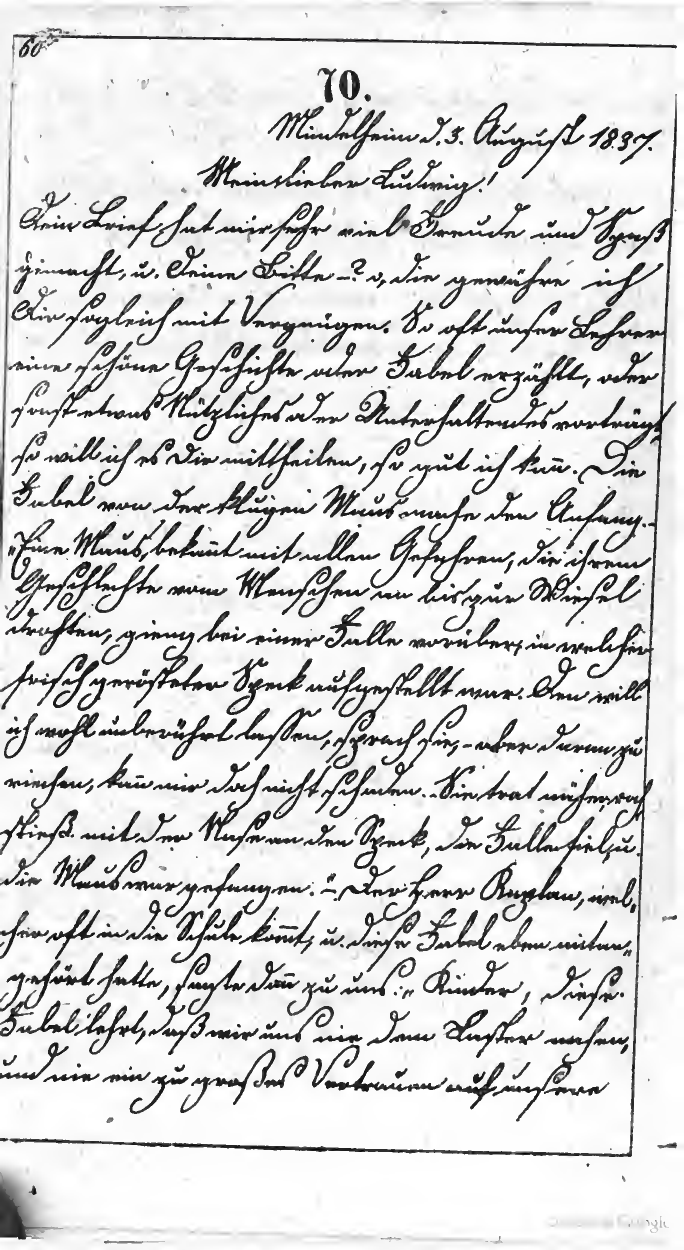 60
70.
Mindelheim d. 3. August 1837.
Mein lieber Ludwig!
Dein Brief hat mir sehr viel Freude und Spaß
gemacht, u. Deine Bitte –? o, die gewähre ich
Dir sogleich mit Vergnügen. So oft unser Lehrer
eine schöne Geschichte oder Fabel erzählt, oder
sonst etwas Nützliches oder Unterhaltendes vorträgt,
so will ich es Dir mittheilen, so gut ich kann. Die
Fabel von der klugen Maus mache den Anfang. –
„Eine Maus, bekannt mit allen Gefahren, die ihrem
Geschlechte vom Menschen an bis zur Wiesel
drohten, gieng bei einer Falle vorüber, in welcher
frisch gerösteter Speck aufgestellt war. Den will
ich wohl unberührt lassen, sprach sie, – aber daran zu
riechen, kann mir doch nicht schaden. Sie trat näher, roch,
stieß mit der Nase an den Speck, die Falle fiel, u.
die Maus war gefangen.“ – Der Herr Kaplan, wel-
cher oft in die Schule kommt, u. diese Fabel eben mitan-
gehört hatte, sagte dann zu uns: „Kinder, diese
Fabel lehrt, daß wir uns nie dem Laster nahen,
und nie ein zu großes Vertrauen auf unsere